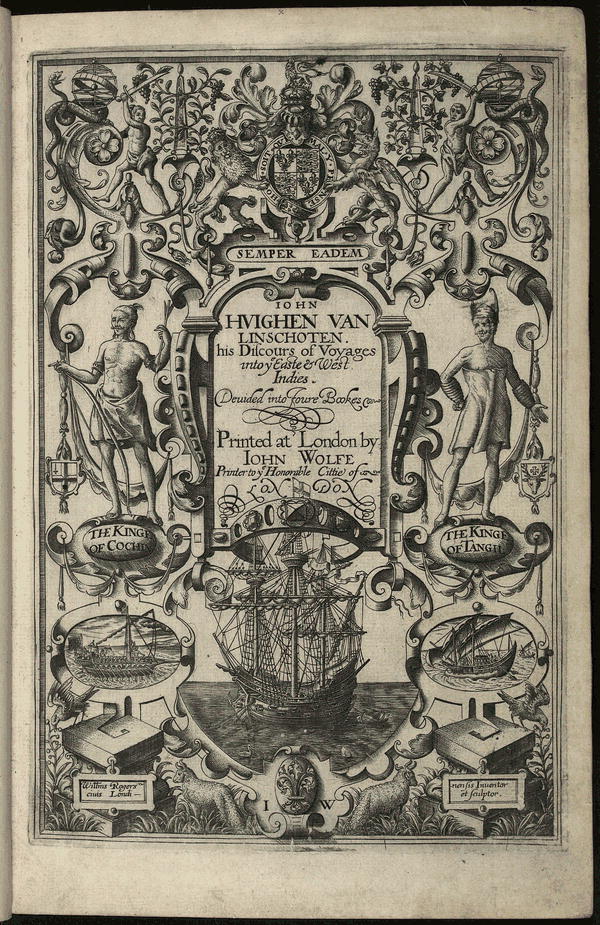 SEMPER EADEM
IOHN
HVIGHEN VAN
LINSCHOTEN.
his Diſcours of Voyages
into yͤ Eaſte & Weſt
Indies.
Deuided into foure Bookes
Printed at London by
IOHN WOLFE
Printer to yͤ Honorable Cittie of
LONDON
THE KINGE
OF COCHIN
THE KINGE
OF TANGIL
Willmus Rogers
ciuis Londi-
nenſis Inuentor
et ſculptor.
I W